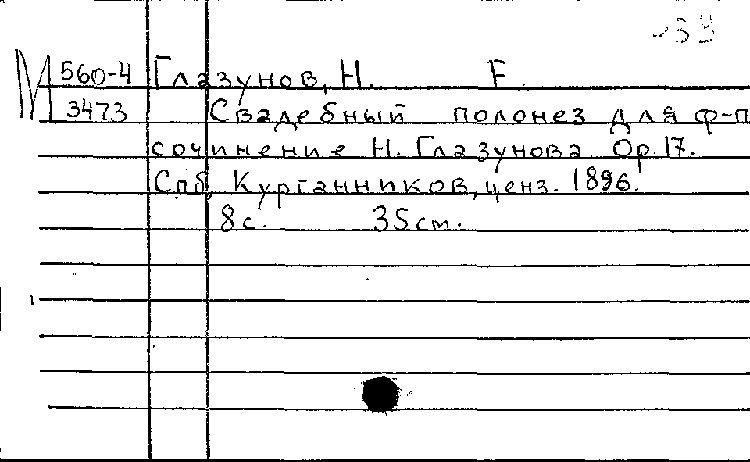 М 560-4 Глазунов, Н. F
3473 Свадебный полонез для ф-п
сочинение Н. Глазунова Op. 17.
Спб, Курганников, ценз. 1896.
8 с. 35 cm.